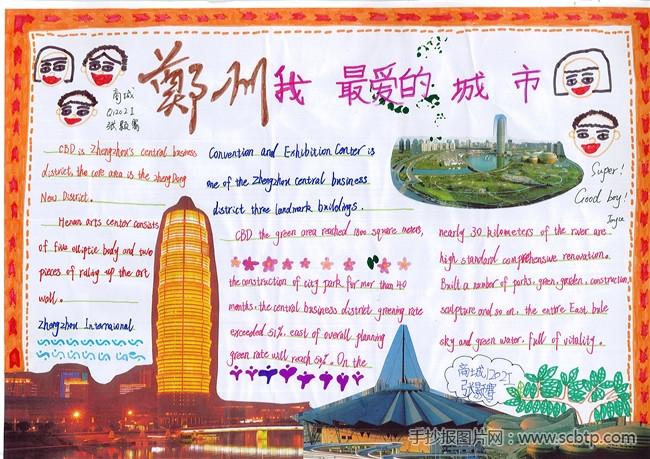 鄭州我最爱的城市
商城
Q12021
CBD is Zhengzhou's central business
district, the core area is the zheng Dong
New District.
Henan arts center consists
of five elliptic body and two
pieces of rating up the art
wall.
zhengzhou International
Convention and Exhibition Center is
one of the zhengzhou central business
district three landmark buildings.
CBD the green area reached 1800 square meters,
the construction of city park for more than 40
months, the central business district greening rate
exceeded 51%, east of overall planning
green rate will reach 50%. On the
nearly 30 kilometers of the river are
high standard comprehensive renovation.
Built a number of parks, green, garden, construction,
sculpture and so on, the entire East bule
sky and green water, full of vitality.
Super!
Good boy!
商城12021
手抄报图片网:www.scbtp.com